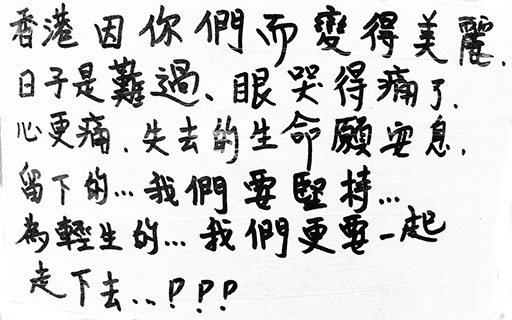 香港因你們而變得美麗.
日子是難過、眼哭得痛了.
心更痛.失去的生命願安息.
留下的...我們要堅持...
為輕生的...我們更要一起
走下去...???